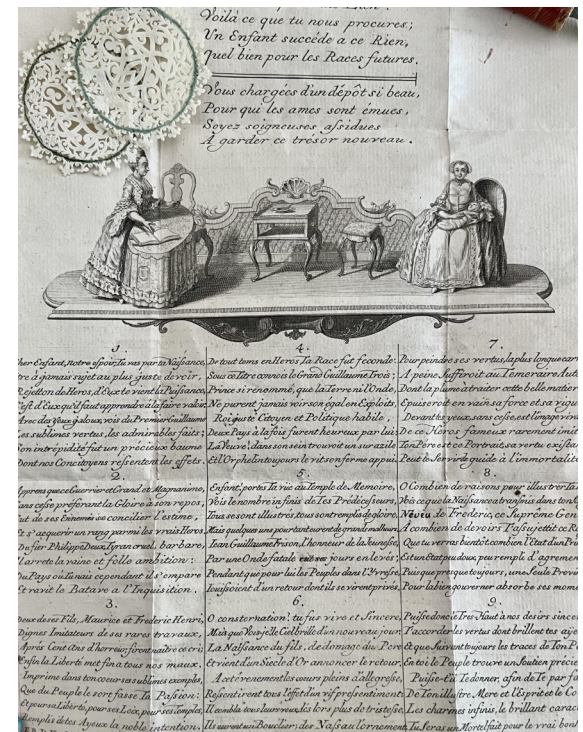 Voilà ce que tu nous procures;
Un Enfant succéde a ce Rien,
Quel bien pour les Races futures.
Vous chargées d'un dépôt si beau,
Pour qui les ames sont émues,
Soyez soigneuses assidues
A garder ce trésor nouveau.
her Enfant, notre espoir, Tu vas par ta Naissance,
re à gamais sujet au plus juste devoir,
Rejetton de Heros, d'Eux te vient la Puissance,
C'est d'Eux qu'il faut apprendre à la faire valoir.
Avec des yeux jaloux, vois du Premier Guillaume
Les sublimes vertus, les admirables faits;
Son intrépidité fut un précieux baume
Dont nos Concitoyens ressentent les effets.
2.
Apprens que ce Guerrier et Grand et Magnanime,
ans cesse préférant la Gloire à son repos,
ut de ses Ennemis se concilier l'estime,
Et s'acquerir un rang parmi les vrais Heros
Du fier Philippe Deux, Tyran cruel, barbare,
l'arreta la vaine et folle ambition:
Du Pays où Tu nais cependant il s'empare
Et ravit le Batave a l'Inquisition.
3.
Deux de ses Fils, Maurice et Frederic Henri,
Dignes Imitateurs de ses rares travaux,
Après Cent Ans d'horreur, firent naitre ce cri:
Enfin la Liberté met fin a tous nos maux.
Imprime dans ton coeur ces sublimes exemples,
Que du Peuple le sort fasse la Passion:
Et pour sa Liberté, pour ses Loix, pour ses Temples,
Remplis de tes Ayeux la noble intention.
4.
De tout tems en Heros Ta Race fut feconde.
Sous ce Titre connois le Grand Guillaume Trois:
Prince si renommé, que la Terre ni l'Onde,
Ne purent jamais voir son égal en Exploits,
Roi juste Citoyen et Politique habile,
Deux Pays à la fois furent heureux par lui:
La Veuve, dans son sein trouvoit un sur azile
Et l'Orphelin toujours le vit son ferme appui.
5.
Enfant, portes Ta vüe au Temple de Memoire,
Vois le nombre infini de Tes Prédécesseurs,
Tous se sont illustrés, tous sont remplis de gloire,
Mais quelques uns pourtant eurent de grands malheurs.
Jean Guillaume Frison, l'honneur de la Jeunesse,
Par une Onde fatale ses jours enlevés:
Pendant que pour lui les Peuples dans l'Yvresse,
Jouissoient d'un retour dont ils se virent privés.
6.
O consternation! tu fus vive et sincére,
Mais que Vois je! le Ciel brille d'un nouveau jour.
La Naissance du fils, du domage du Pere
Et vient d'un Siecle d'Or annoncer le retour.
A cet évenement les coeurs pleins d'allegresse,
Ressentirent tous l'effet d'un vif pressentiment:
Il combla tous leurs voeux, ils lors plus de tristesse,
Ils eurent un Bouclier; des Nassau l'ornement
7.
Pour peindre ses vertus, la plus longue carr
A peine suffiroit au Temeraire Aute
Dont la plume à traiter cette belle matier
Epuiseroit en vain sa force et sa vigue
Devant tes yeux sans cesse, est l'image viva
De ce Heros fameux rarement imit
Ton Pere est ce Portrait, sa vertu exista
Peut te Servir de guide à l'immortalité
8.
O Combien de raisons pour illustrer Ta
Vois ce que la Naissance a transmis dans ton
Neveu de Frederic, ce Suprême Gen
A combien de devoirs T'assujettit ce R
Que tu verras buntôt combien l'Etat d'un Pri
Est un Etat peu doux, peu rempli d'agremen
Puis que presque toujours, une Seule Provin
Pour la bien gouverner absorbe ses mome
9.
Puisse donc le Tres-Haut à nos désirs since
T'accorder les vertus dont brillent tes aye
Et que Suivant toujours les traces de Ton P
En toi le Peuple trouve un Soutien précie
Puisse-t'il Te donner, afin de Te par fa
De Ton illustre Mere et l'Esprit et le Co
Les charmes infinis, le brillant carac
Tu Seras un Mortel fait pour le vrai bou